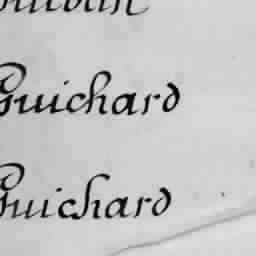 Guichard
Guichard